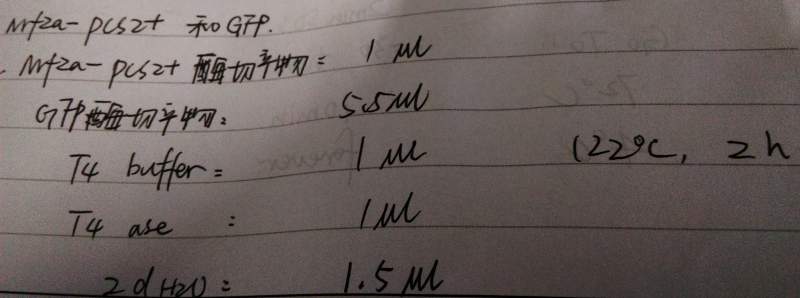 Mf2a-pcs2+ 和GFP.
Mf2a-pcs2+ 酶切产物: 1 μl
GFP酶切产物: 5.5μl
T4 buffer: 1 μl (22°C, 2h
T4 ase : 1μl
2dH2O: 1.5 μl